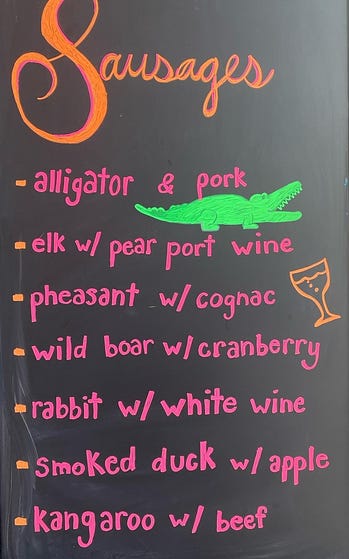 Sausages
- alligator & pork
- elk w/ pear port wine
- pheasant w/ cognac
- wild boar w/ cranberry
- rabbit w/ white wine
- smoked duck w/ apple
- kangaroo w/ beef